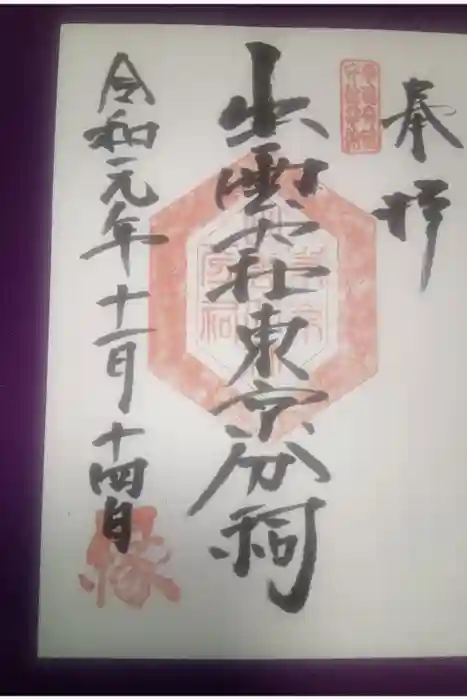 奉拝
出雲大社東京分祠
令和元年十一月十四日
縁